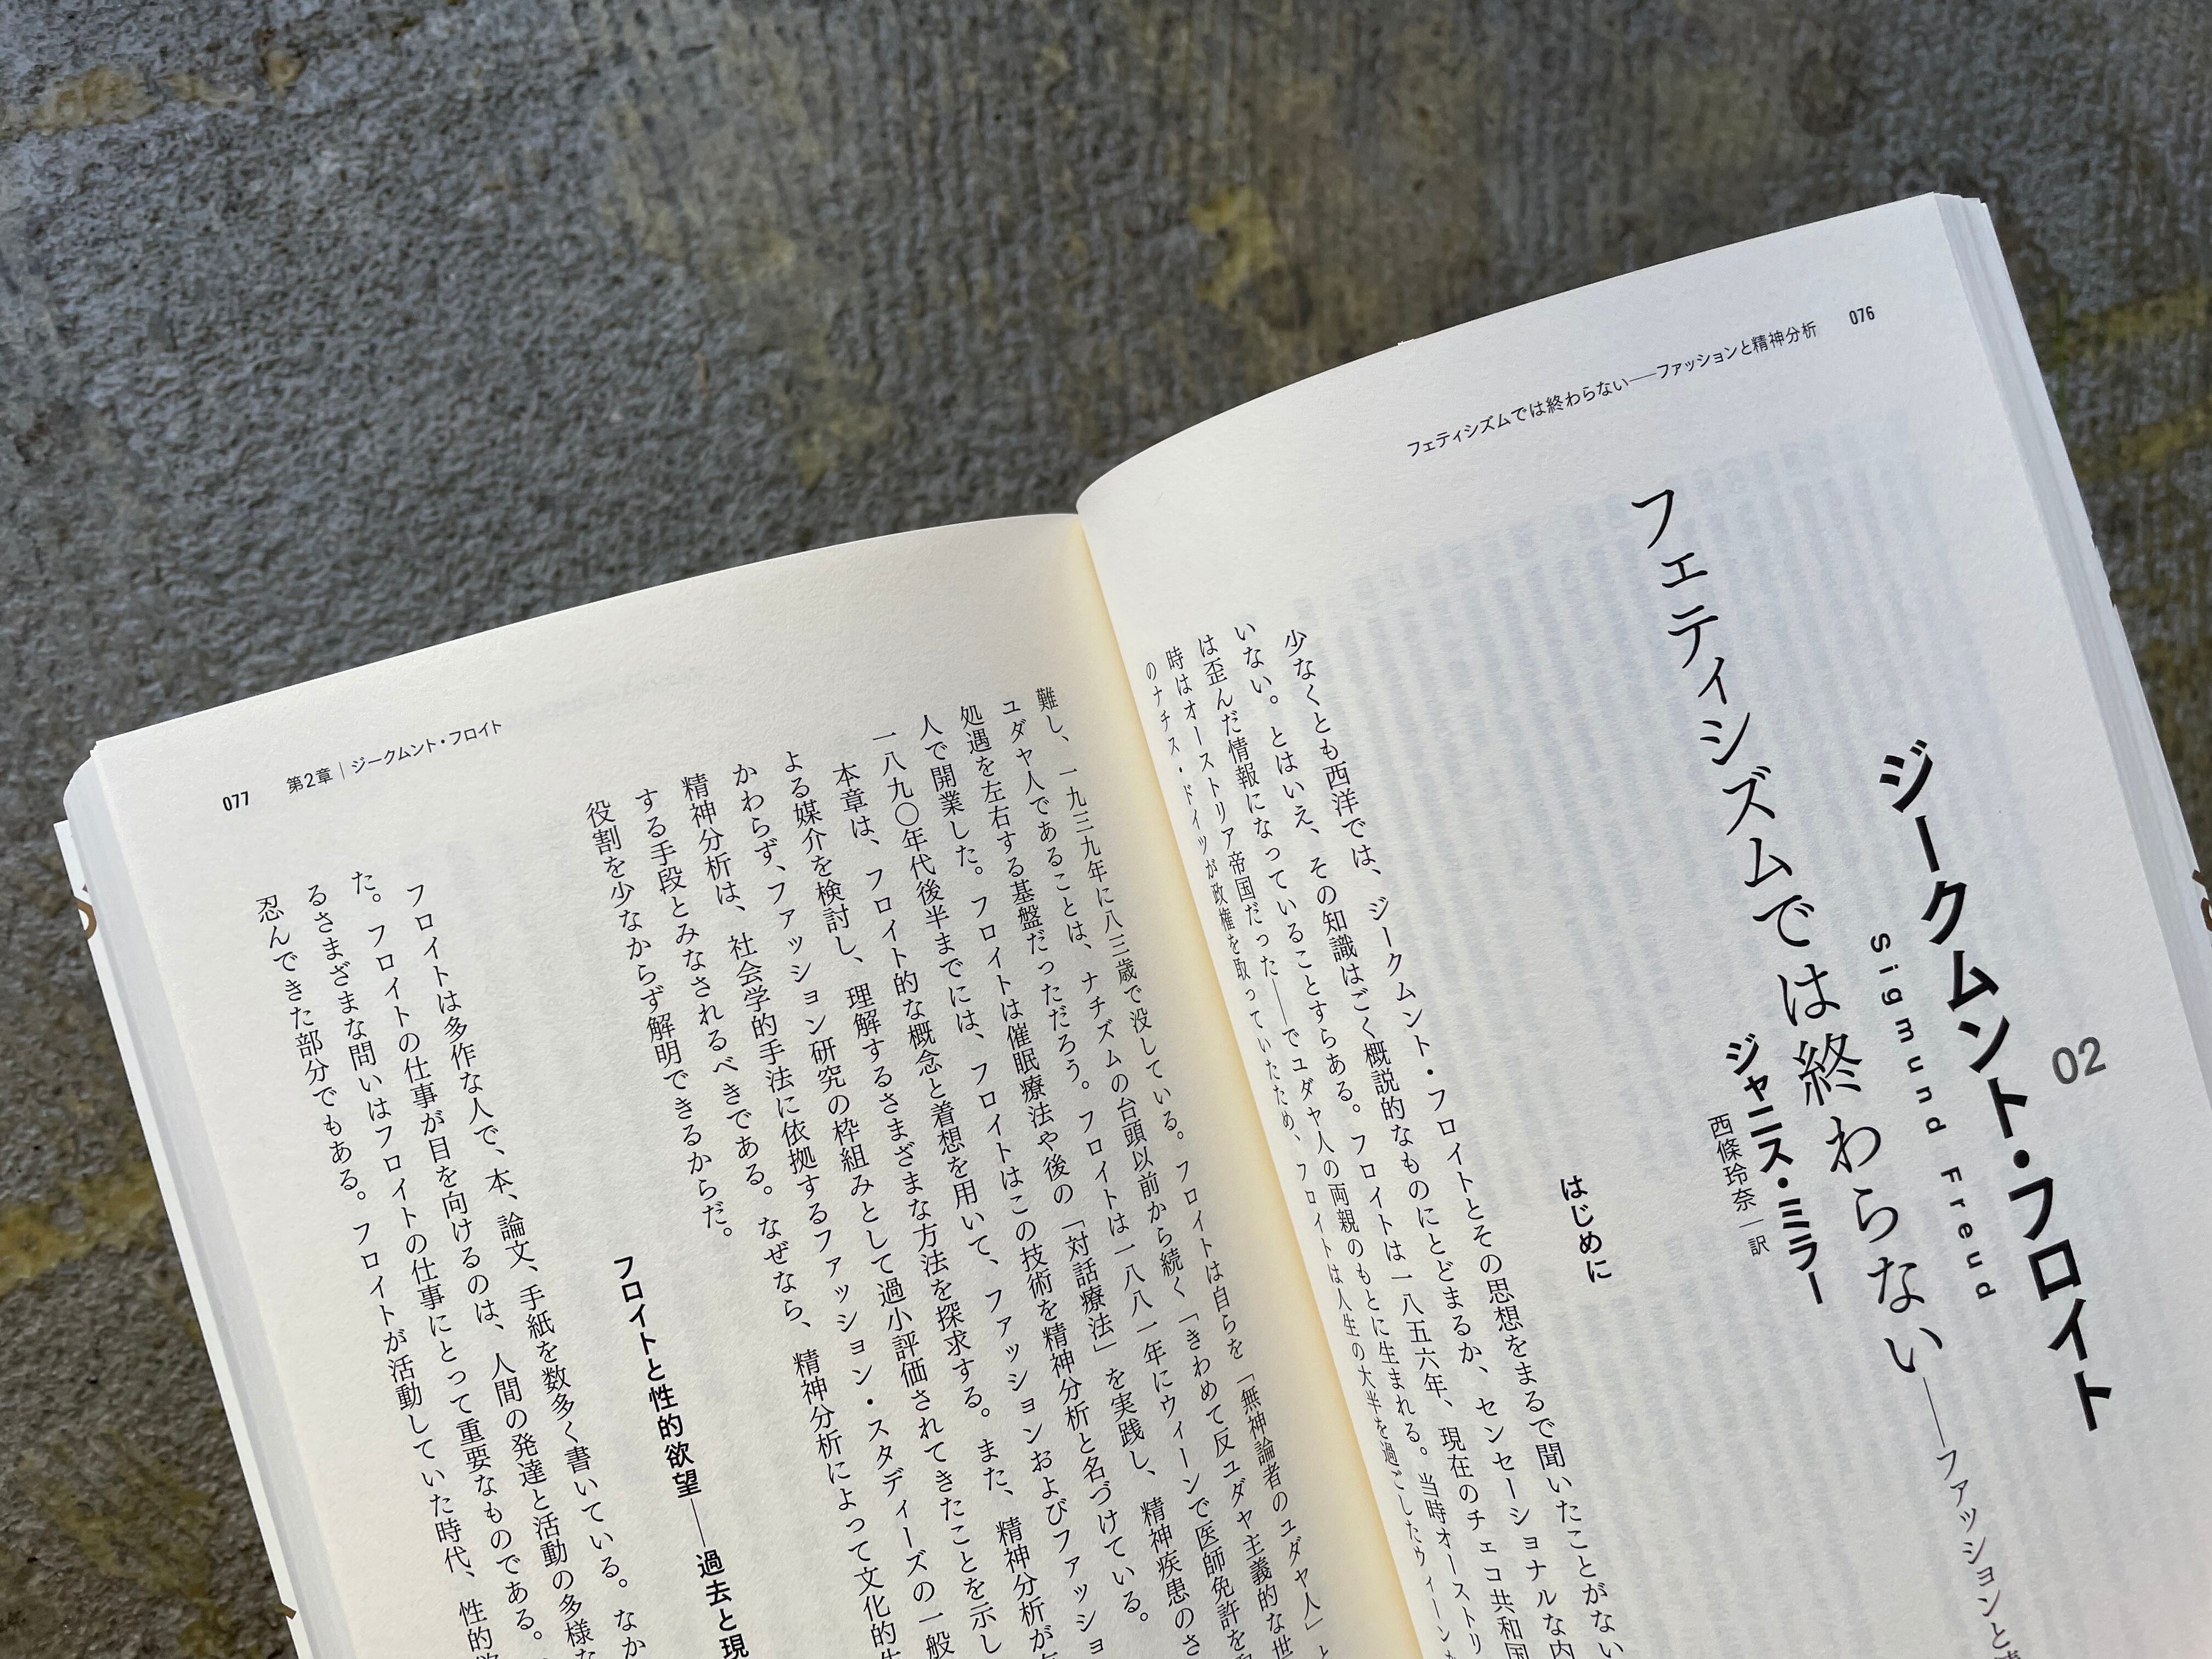 076
フェティシズムでは終わらない──ファッションと精神分析
02
ジークムント・フロイト
Sigmund Freud
フェティシズムでは終わらない──ファッションと
ジャニス・ミラー
西條玲奈|訳
はじめに
少なくとも西洋では、ジークムント・フロイトとその思想をまるで聞いたことがない
いない。とはいえ、その知識はごく概説的なものにとどまるか、センセーショナルな内
は歪んだ情報になっていることすらある。フロイトは一八五六年、現在のチェコ共和国
時はオーストリア帝国だった──でユダヤ人の両親のもとに生まれる。当時オーストリ
のナチス・ドイツが政権を取っていたため、フロイトは人生の大半を過ごしたウィーン
077
第2章|ジークムント・フロイト
難し、一九三九年に八三歳で没している。フロイトは自らを「無神論者のユダヤ人」と
ユダヤ人であることは、ナチズムの台頭以前から続く「きわめて反ユダヤ主義的な世
処遇を左右する基盤だっただろう。フロイトは一八八一年にウィーンで医師免許を
人で開業した。フロイトは催眠療法や後の「対話療法」を実践し、精神疾患のさ
一八九〇年代後半までには、フロイトはこの技術を精神分析と名づけている。
本章は、フロイト的な概念と着想を用いて、ファッションおよびファッショ
よる媒介を検討し、理解するさまざまな方法を探求する。また、精神分析が
かわらず、ファッション研究の枠組みとして過小評価されてきたことを示し
精神分析は、社会学的手法に依拠するファッション・スタディーズの一般
する手段とみなされるべきである。なぜなら、精神分析によって文化的生
役割を少なからず解明できるからだ。
フロイトと性的欲望──過去と現
フロイトは多作な人で、本、論文、手紙を数多く書いている。なか
た。フロイトの仕事が目を向けるのは、人間の発達と活動の多様な
るさまざまな問いはフロイトの仕事にとって重要なものである。
忍んできた部分でもある。フロイトが活動していた時代、性的